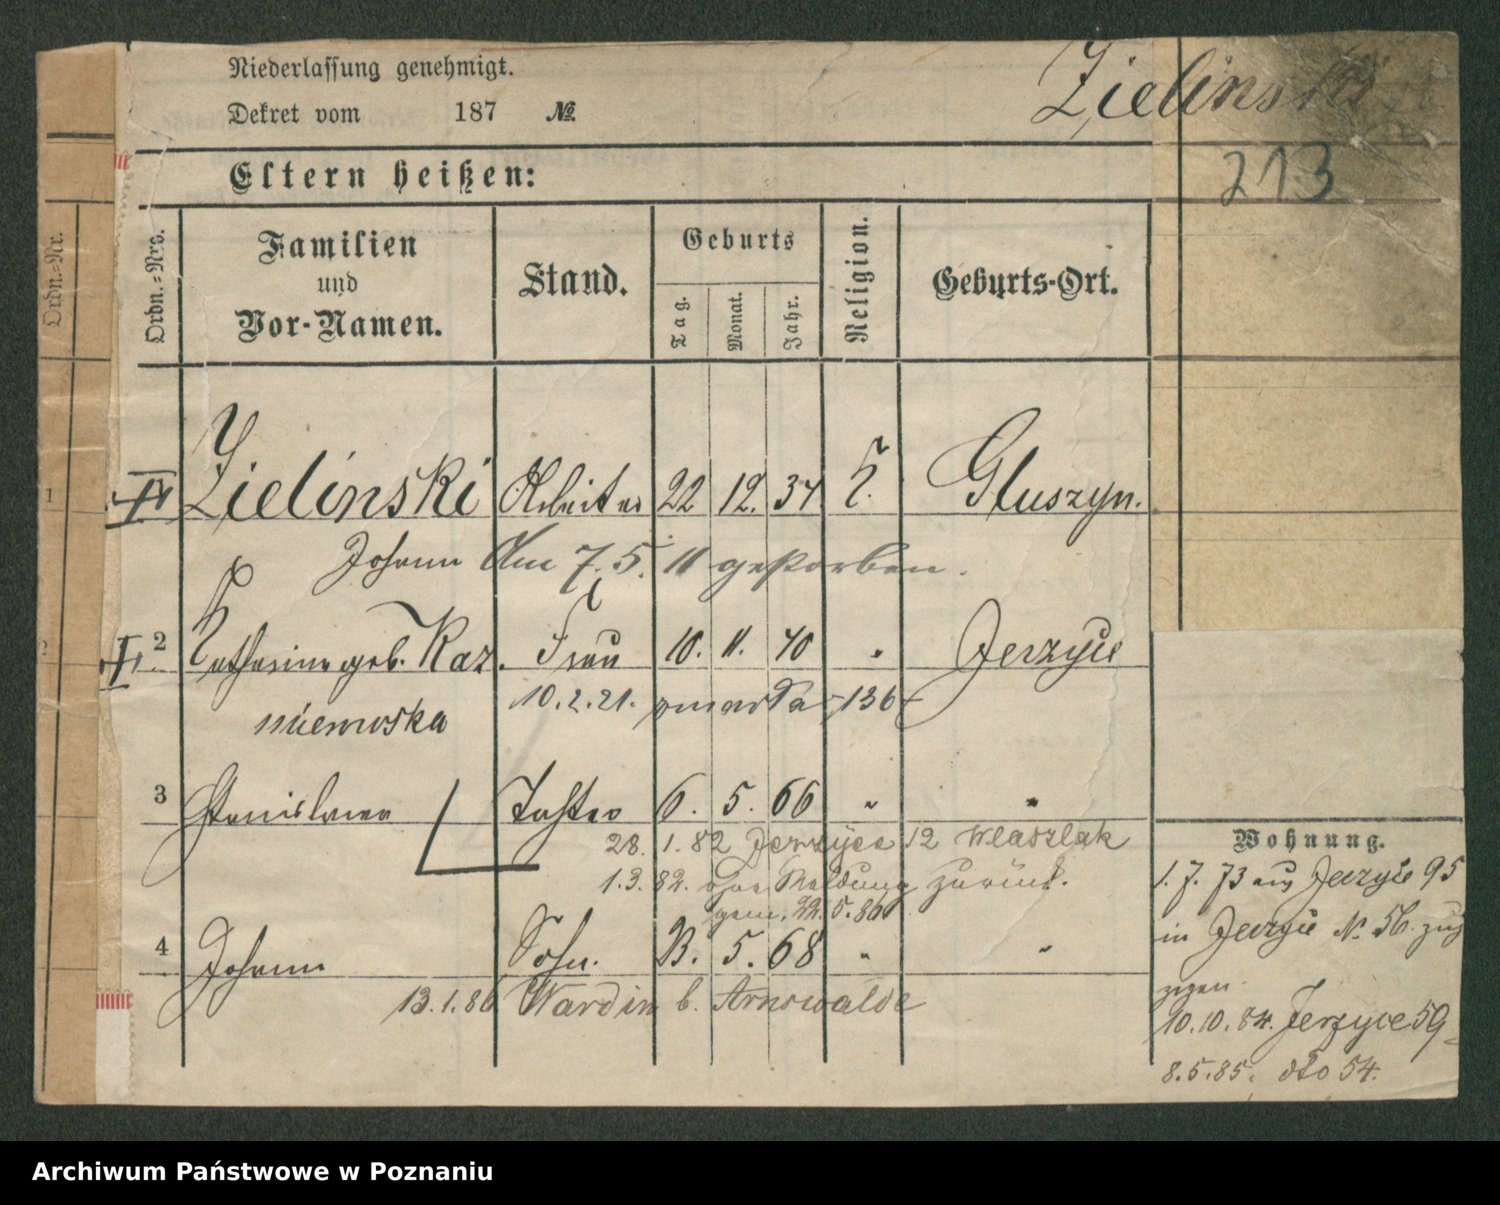 Niederlassung genehmigt.
Dekret vom 187 №
Zielinski
213
Eltern heißen:
Ordn.=Nr.
Ordn.=Nro.
Familien und Vor-Namen.
Stand.
Geburts
Tag.
Monat.
Jahr.
Religion.
Geburts-Ort.
1
II Zielinski Arbeiter 22 12. 34 k. Gluszyn.
Johann Am 7.5. 11 gestorben.
2
I 2 Katharina geb. Kaz- Frau 10. 11. 40 " Jerzyce
niemoska 10.2.21. zmarła 136
3 Stanislawa Tochter 6. 5. 66 " "
28. 1. 82 Jerzyce 12 Wlaszlak
1.3. 82. ohne Meldung zurück.
gem. 22. 5. 86
4 Johann Sohn. 13. 5. 68 " "
13.1.86 Wardin b. Arnswalde
Wohnung.
1. 7. 73 aus Jerzyce 95
in Jerzyce № 56. zuge
zogen
10. 10. 84. Jerzyce 59
8. 5. 85. dto 54.